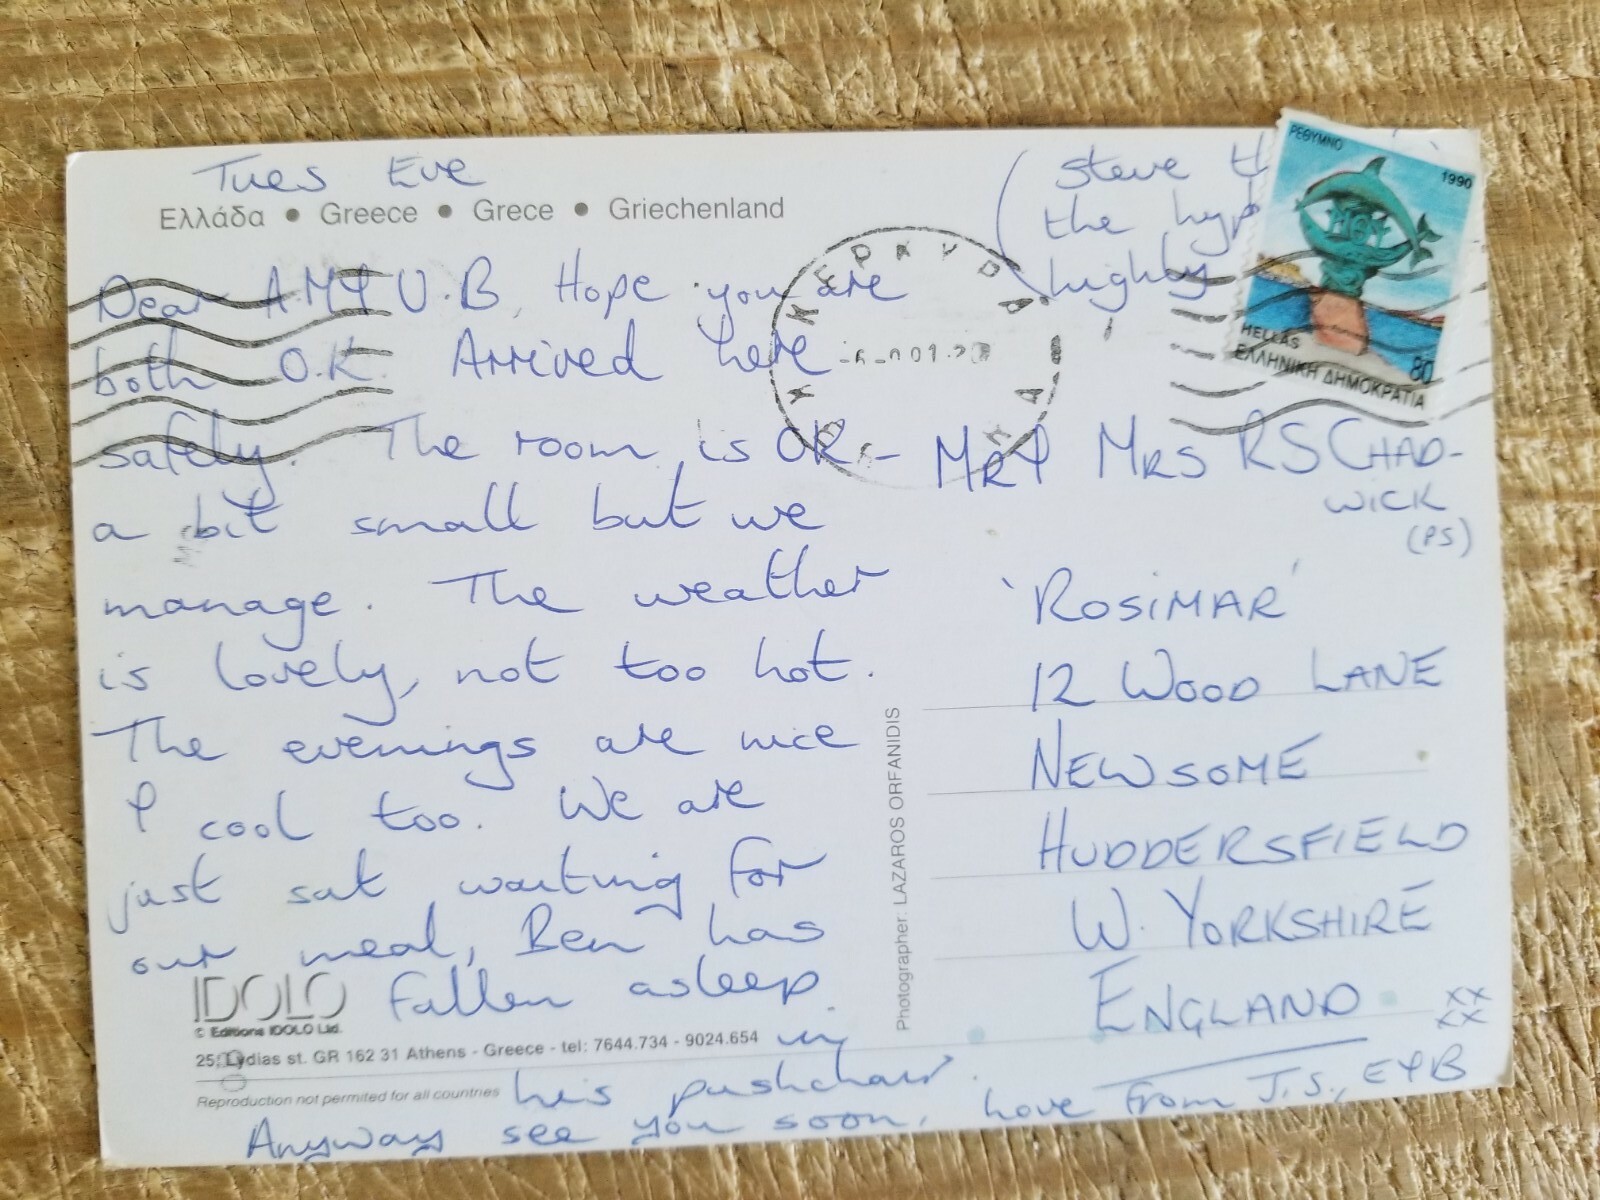 Tues Eve
Ελλάδα • Greece • Grece • Griechenland
Dear A.M & U.B, Hope you are
both O.K. Arrived here
safely. The room is OK -
a bit small but we
manage. The weather
is lovely, not too hot.
The evenings are nice
& cool too. We are
just sat waiting for
our meal, Ben has
fallen asleep
in
his pushchair.
Anyway see you soon, love from J.S., E & B
XX
XX
IDOLO
© Editions IDOLO Ltd.
25, Lydias st. GR 162 31 Athens - Greece - tel: 7644.734 - 9024.654
Reproduction not permitted for all countries
Photographer: LAZAROS ORFANIDIS
(Steve
the
highly
ΡΕΘΥΜΝΟ
1990
HELLAS
80
ΕΛΛΗΝΙΚΗ ΔΗΜΟΚΡΑΤΙΑ
ΚΕΡΚΥΡΑ
MR & MRS RS CHAD-
WICK
(PS)
'ROSIMAR'
12 WOOD LANE
NEWSOME
HUDDERSFIELD
W. YORKSHIRE
ENGLAND